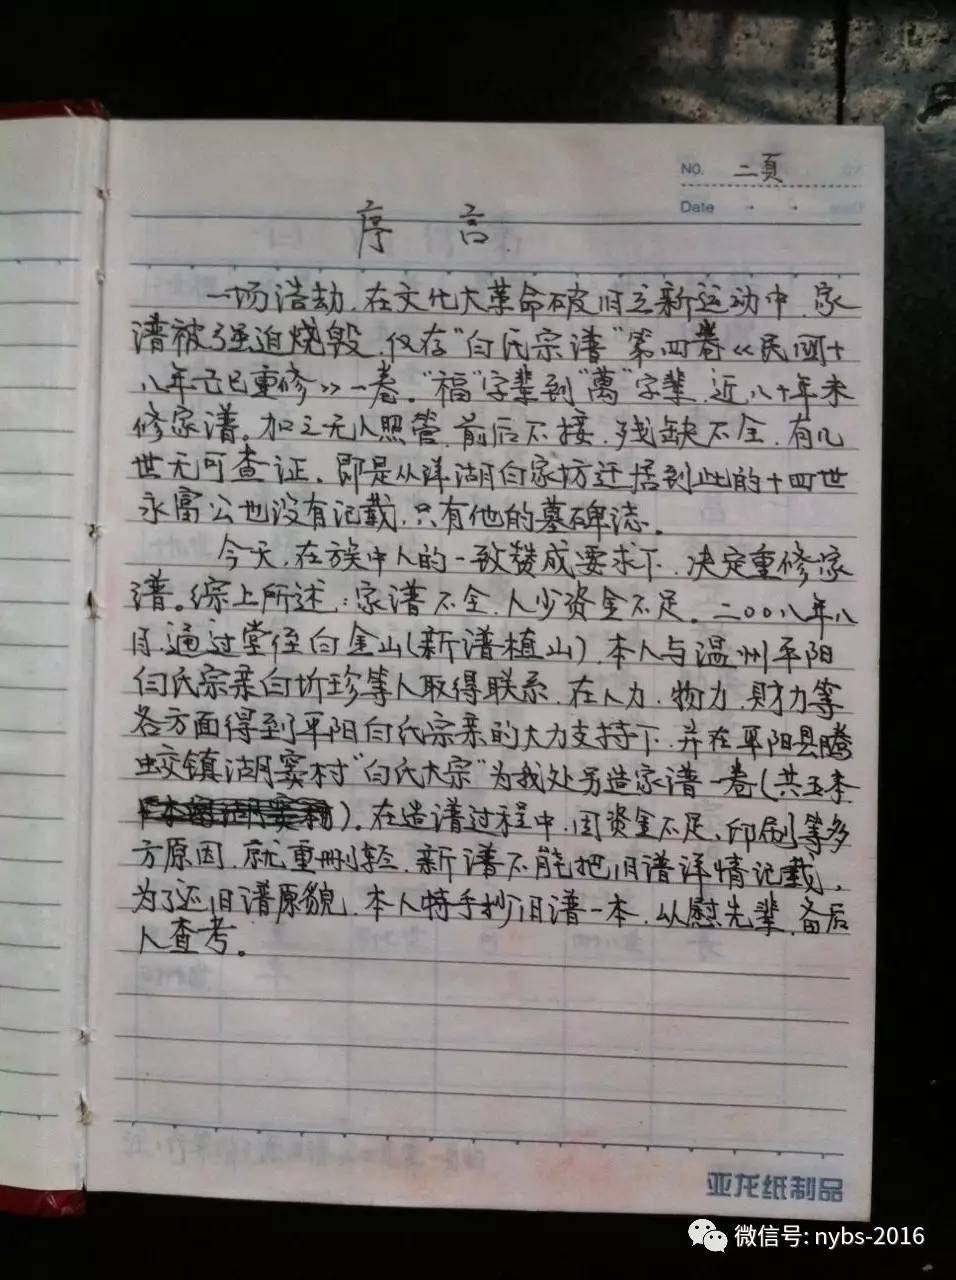 NO. 二頁
Date
序言
一场浩劫，在文化大革命破旧立新运动中，家
谱被强迫烧毁，仅存“白氏宗谱”第四卷《民国十
八年己巳重修》一卷。“福”字辈到“萬”字辈，近八十年未
修家谱。加之无人照管，前后不接，残缺不全，有几
世无可查证，即是从洋湖白家坊迁居到此的十四世
永富公也没有记载，只有他的墓碑誌。
今天，在族中人的一致赞成要求下，决定重修家
谱。综上所述：家谱不全，人少资金不足。二00八年八
月，通过堂侄白金山（新谱植山），本人与温州平阳
白氏宗亲白圻珍等人取得联系，在人力，物力，财力等
各方面得到平阳白氏宗亲的大力支持下，并在平阳县腾
蛟镇湖窦村“白氏大宗”为我处另造家谱一卷（共五本
）。在造谱过程中，因资金不足、印刷等多
方原因，就重删轻，新谱不能把旧谱详情记载，
为了还旧谱原貌，本人特手抄旧谱一本，以慰先辈，备后
人查考。
亚龙纸制品
微信号: nybs-2016